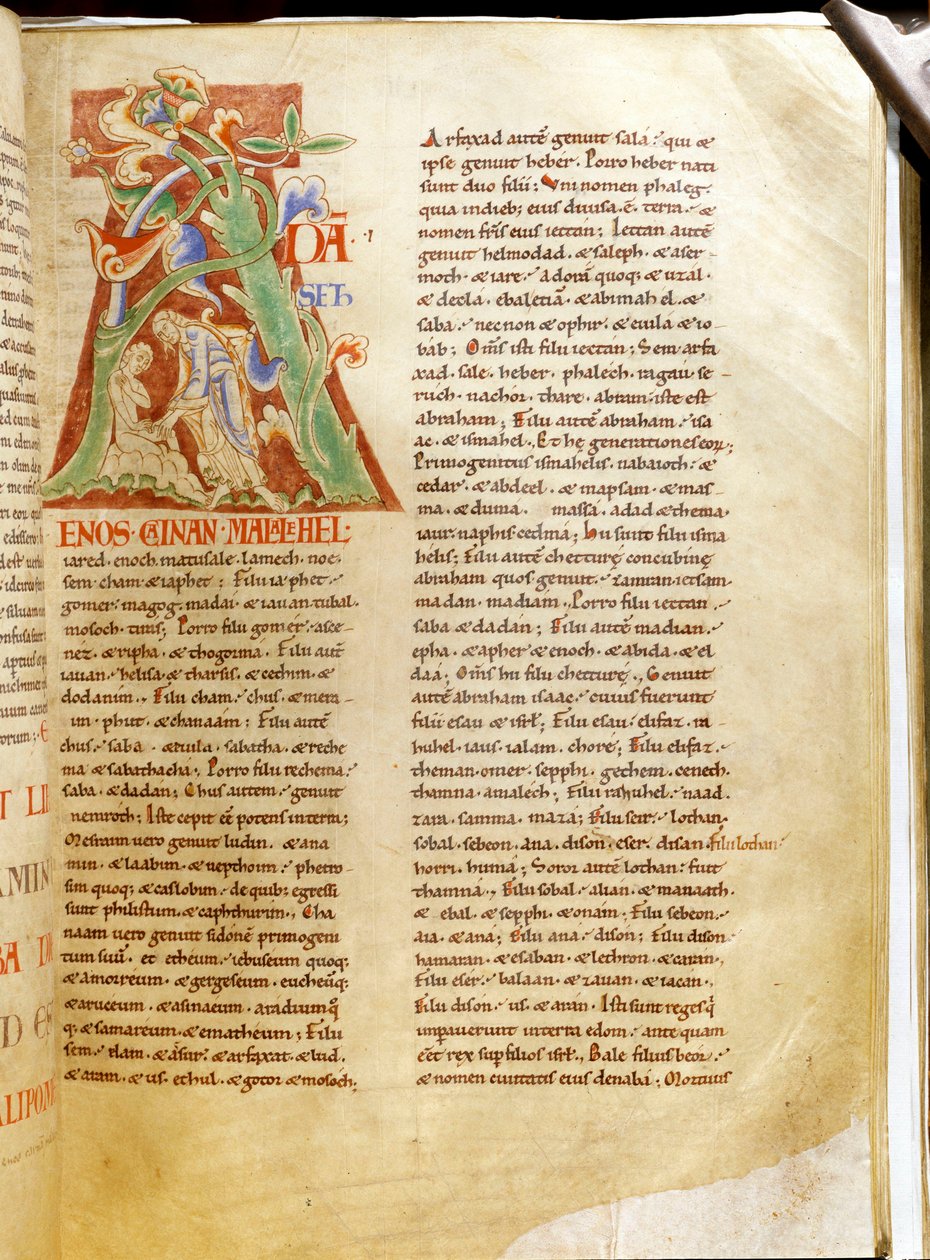 ADĀ·
SETh
ENOS· CAINAN· MALALEHEL·
iared. enoch. matusale. lamech. noe.
sem. cham. & iaphet; Filii iaphet.
gomer. magog. madai. & iauan. tubal.
mosoch. tiras; Porro filii gomer. asce-
néz. & ripha. & thogorma. Filii autē
iauan. helisa. & tharsis. & cethim. &
dodanim., Filii cham. chus. & mesra
im. phut. & chanaám; Filii autē
chus. saba. & euila. sabatha. & reche
ma. & sabathachá. Porro filii rechema.
saba. & dadan; Chus autem. genuit
nemróth; Iste cepit eē potens in terra;
Mesraim uero genuit ludin. & ana
min. & laabim. & nepthoim. phetro-
sim quoq; & caslobim. de quib; egressi
sunt philistiim. & caphthurim., Cha
naam uero genuit sidónē primogeni
tum suū. et etheum. iebuseum quoq;
& amorreum. & gergeseum. eucheūq;
& aruceum. & asinaeum. aradiumq̄
q; & samareum. & ematheum; Filii
sem. elam. & ásur. & arfaxat. & lud.
& aram. & us. et hul. & gotor. & mosoch;
Arfaxad autē genuit salá. qui &
ipse genuit hebér. Porro heber nati
sunt duo filii; Vni nomen phaleg.
quia in dieb; eius diuisa. ē. terra. &
nomen fr̄is eius iectan; Iectan autē
genuit helmodad. & saleph. & aser-
moth. & iare. adorá quoq; & uzal.
& decla. ebalētiā. & abimahel. &
saba. nec non & ophir. & euila. & io-
báb; Om̄s isti filii iectán; Sem. arfa
xad. sale. heber. phalech. ragau. se-
ruch. nachór. thare. abram. iste est
abraham; Filii autē abraham. isa
ac. & ismahel. Et hę generationes eoꝝ;
Primogenitus ismahelis. nabaioth. &
cedar. & abdeel. & mapsam. & mas-
ma. & duma. massa. adad. & thema.
iaur. naphis. cedmá; hii sunt filii isma
helis; Filii autē chetturę concubinę
abraham quos genuit. zamran. iecsam.
madan. madiám., Porro filii iectan.
saba & dadan; Filii autē madian.
epha. & apher & enoch. & abida. & el
daá; Om̄s hii filii chetturę., Genuit
autē abraham isaac. cuius fuerunt
filii esau & isrł; Filii esau. elifaz. ra-
huhel. iaus. ialam. chorę; Filii elifaz.
theman. omer. sepphi. gethem. cenech.
thamna. amalech; Filii rahuhel. naad.
zara. samma. mazá; Filii seir. lothan.
sobal. sebeon. ana. dison. eser. disan. Filii lothan.
horri. humá; Soror autē lothan. fuit
thamná., Filii sobal. alian. & manaath.
& ebal. & sepphi. & onám; Filii sebeon.
aia. & aná; Filii ana. dison; Filii dison.
hamaran. & esaban. & iethron. & caran.,
Filii esér. balaan. & zauan. & iacán.,
Filii disón. us. & arán. Isti sunt reges q̄
imperauerunt in terra edom. ante quam
eēt rex sup filios isrł., Bale filius beór.
& nomen ciuitatis eius denabá; Mortuus